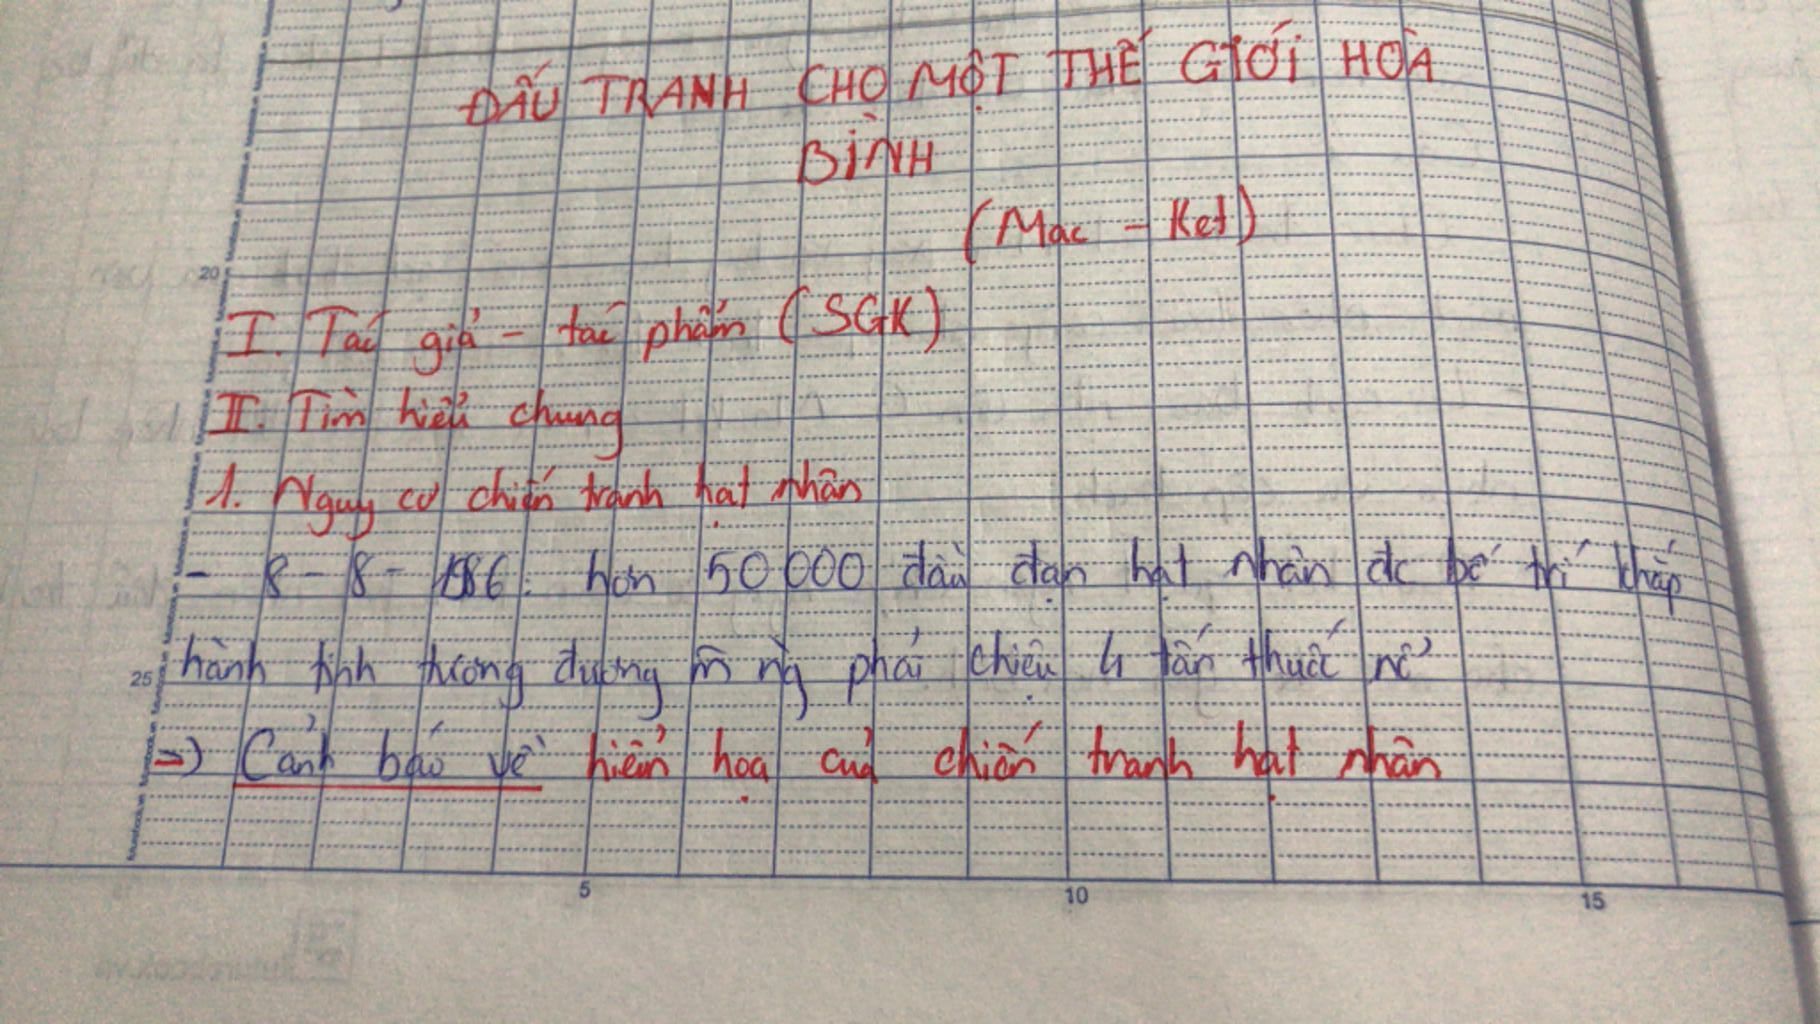 ĐẤU TRANH CHO MỘT THẾ GIỚI HOÀ
BÌNH
(Mac - Ket)
20
I. Tác giả - tác phẩm (SGK)
II. Tìm hiểu chung
1. Nguy cơ chiến tranh hạt nhân
- 8-8-1986: hơn 50 000 đầu đạn hạt nhân đc bố trí khắp
25 hành tinh tương đương m̄ ng̀ phải chịu 4 tấn thuốc nổ
=) Cảnh báo về hiểm họa của chiến tranh hạt nhân
5 10 15